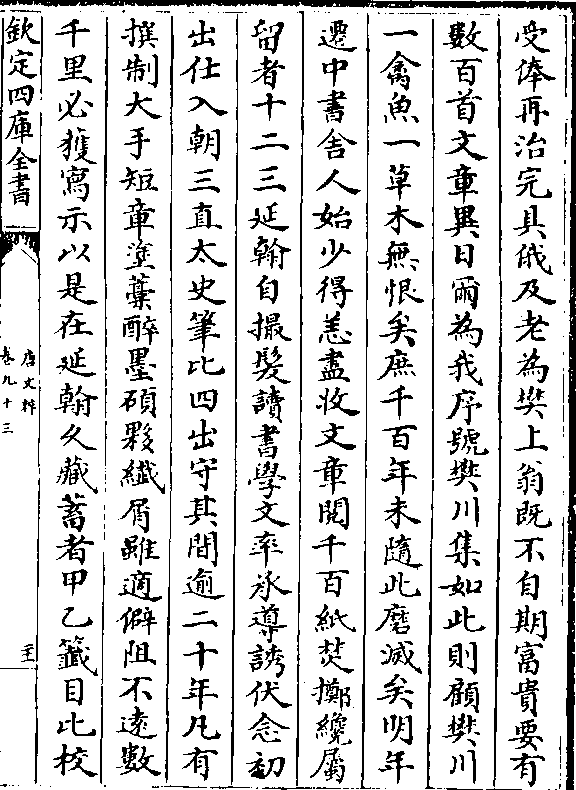 受俸再治完具俄及老為樊上翁既不自期富貴要有
數百首文章異日爾為我序號樊川集如此則顧樊川
一禽魚一草木無恨矣庶千百年未隨此磨滅矣明年
遷中書舍人始少得恙盡收文章閱千百紙焚擲纔屬
留者十二三延翰自撮髮讀書學文率承導誘伏念初
出仕入朝三直太史筆比四出守其間逾二十年凡有
撰制大手短章塗藁醉墨碩夥纖屑雖適僻阻不遠數
千里必獲寫示以是在延翰久藏蓄者甲乙籤目比校
欽定四庫全書
唐文粹
卷九十三